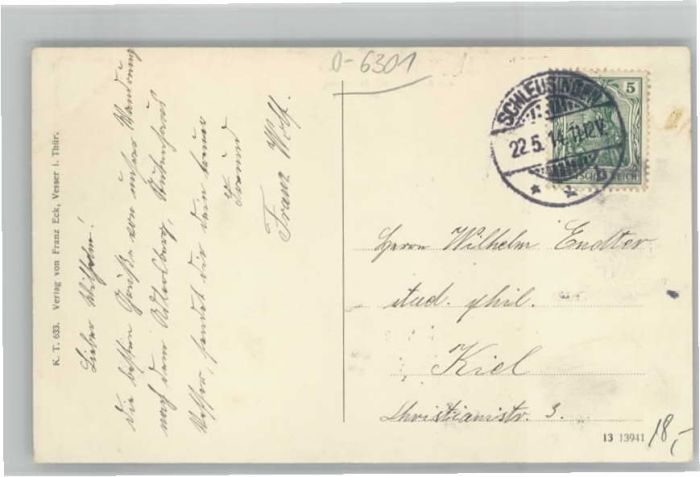 0-6301
K. T. 633. Verlag von Franz Eck, Vesser i. Thür.
Lieber Wilhelm!
Die besten Grüße von unserer Wanderung
nach dem Adlersberg,
Vesser, sendet dir dein treuer
Freund
Franz Wolf.
SCHLEUSINGEN
22.5.14 11-12V
5
Herrn Wilhelm Endter
stud. phil.
Kiel
Christianistr. 3.
13 13941
18,-